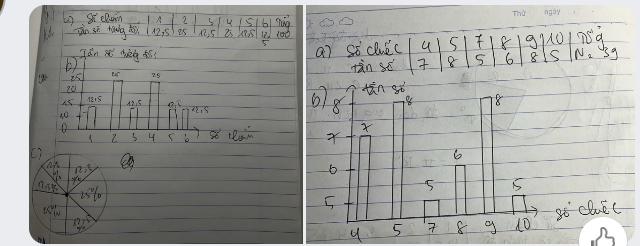 a) Số chấm | 1 | 2 | 3 | 4 | 5 | 6 | Tổng
Tần số tương đối | 12,5 | 25 | 12,5 | 25 | 12,5 | 12,5 | 100
Tần số tương đối
b)
25
20
15
10
0
12,5
25
12,5
25
12,5
12,5
1 2 3 4 5 6 số chấm
c)
12,5%
25%
12,5%
25%
Thứ ngày
a) Số chiếc | 4 | 5 | 7 | 8 | 9 | 10 | Tổng
tần số | 7 | 8 | 5 | 6 | 8 | 5 | N = 39
b)
tần số
8
7
6
5
7
8
5
6
8
5
4 5 7 8 9 10 số chiếc